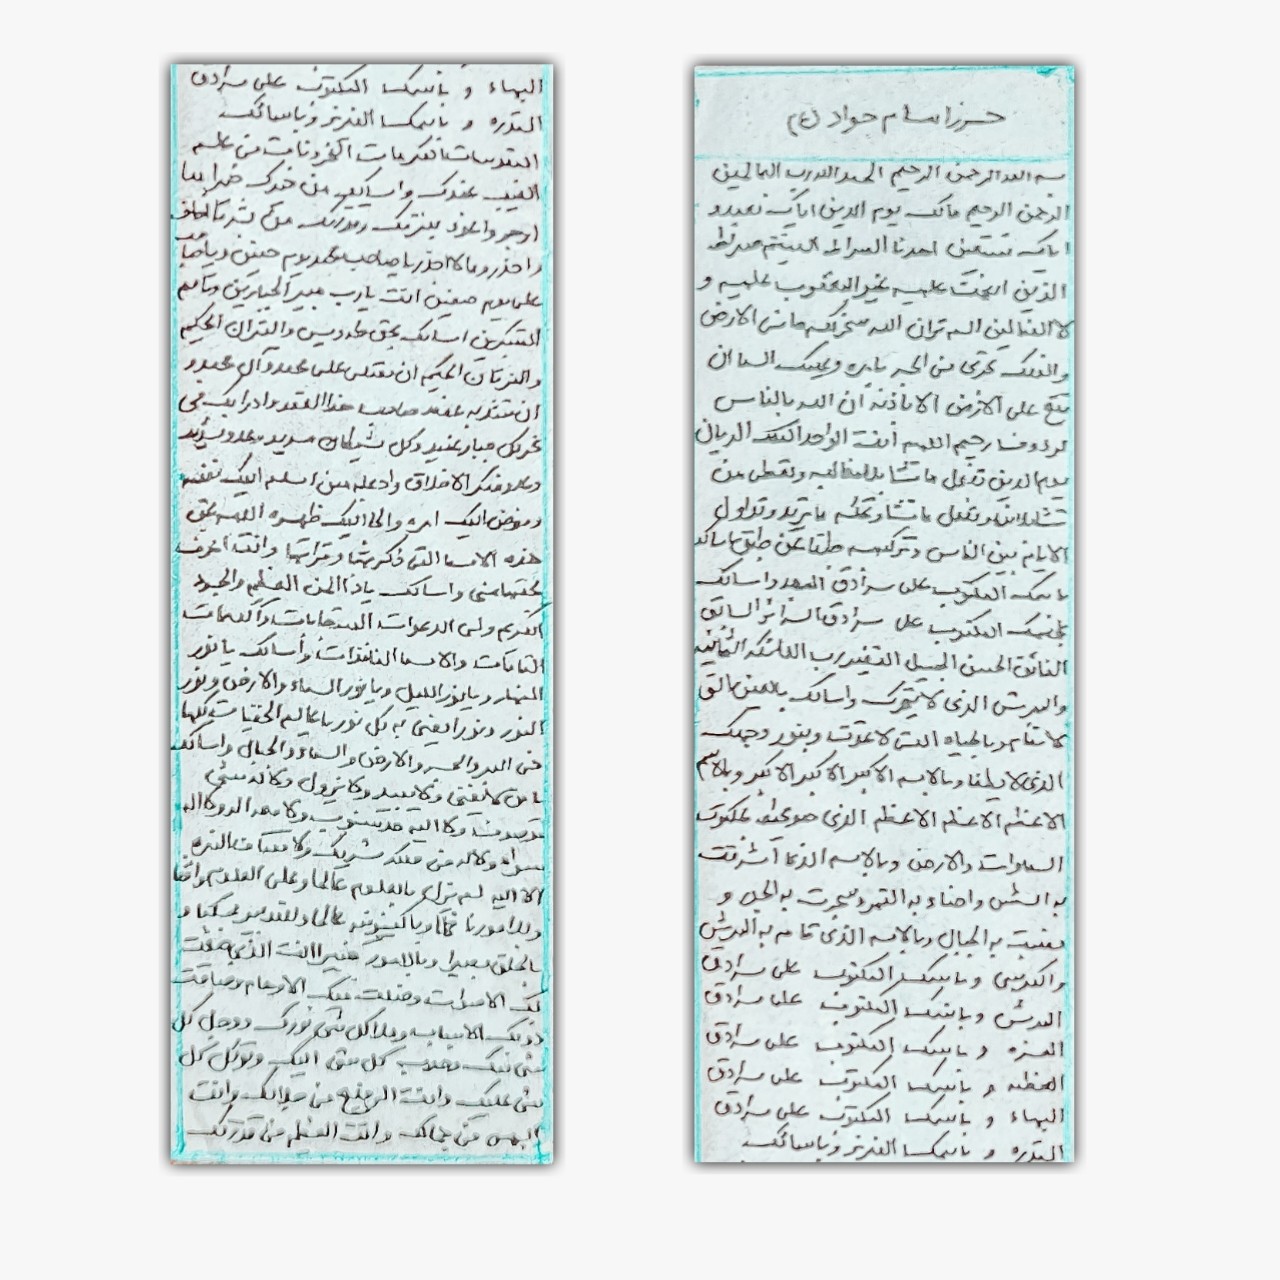 حرز امام جواد (ع)
بسم الله الرحمن الرحیم الحمد لله رب العالمین
الرحمن الرحیم مالک یوم الدین ایاک نعبد و
ایاک نستعین اهدنا الصراط المستقیم صراط
الذین انعمت علیهم غیر المغضوب علیهم و
لا الضالین الم تر ان الله سخر لکم ما فی الارض
والفلک تجری فی البحر بامره و یمسک السما ان
تقع علی الارض الا باذنه ان الله بالناس
لروف رحیم اللهم انت الواحد الملک الدیان
یوم الدین تفعل ما تشا بلا مغالبه و تعطی من
تشا بلا من و تفعل ما تشا و تحکم ما ترید و تداول
الایام بین الناس و ترکبهم طبقا عن طبق اسالک
باسمک المکتوب علی سرادق المجد و اسالک
باسمک المکتوب علی سرادق السرائر السابق
الفائق الحسن الجمیل النضیر رب الملائکه الثمانیه
والعرش الذی لا یتحرک و اسالک بالعین التی
لا تنام و بالحیاه التی لا تموت و بنور وجهک
الذی لا یطفا و بالاسم الاکبر الاکبر الاکبر و بالاسم
الاعظم الاعظم الاعظم الذی هو محیط بملکوت
السموات والارض و بالاسم الذی اشرقت
به الشمس و اضاء به القمر و سجرت به البحر و
نصبت به الجبال و بالاسم الذی قام به العرش
والکرسی و باسمک المکتوب علی سرادق
العرش و باسمک المکتوب علی سرادق
العزه و باسمک المکتوب علی سرادق
العظمه و باسمک المکتوب علی سرادق
البهاء و باسمک المکتوب علی سرادق
القدره و باسمک العزیز و باسمائک
البهاء و باسمک المکتوب علی سرادق
القدره و باسمک العزیز و باسمائک
المقدسات المکرمات المخزونات فی علم
الغیب عندک و اسالک من خیرک خیرا مما
ارجو و اعوذ بعزتک و قدرتک من شر ما اخاف
و احذر و ما لا احذر یا صاحب محمد یوم حنین و یا صاحب
علی یوم صفین انت یارب مبیر الجبارین و قاصم
المتکبرین اسالک بحق طه و یس والقران الحکیم
والفرقان الحکیم ان تصلی علی محمد و آل محمد و
ان تشد به عضد صاحب هذا العقد و ادرا بک فی
نحر کل جبار عنید و کل شیطان مرید و عدو شدید
و عدو منکر الاخلاق و اجعله ممن اسلم الیک نفسه
و فوض الیک امره و الجا الیک ظهره اللهم بحق
هذه الاسما التی ذکرتها و قراتها و انت اعرف
بحقها منی و اسالک یا ذا المن العظیم والجود
الکریم ولی الدعوات المستجابات والکلمات
التامات والاسما النافذات و أسالک یا نور
النهار و یا نور اللیل و یا نور السماء والارض و نور
النور و نورا یضیء به کل نور یا عالم الخفیات کلها
فی البر والبحر والارض والسماء والجبال و اسالک
یا من لا یفنی و لا یبید و لا یزول و لا له شی
موصوف و لا الیه حد منسوب و لا معه اله و لا اله
سواه و لا له فی ملکه شریک و لا تضاف العزه
الا الیه لم یزل بالعلوم عالما و علی العلوم واقفا
و للامور ناظما و بالکینونیه عالما و للتدبیر محکما و
بالخلق بصیرا و بالامور خبیرا انت الذی خشعت
لک الاصوات و ضلت فیک الاوهام و ضاقت
دونک الاسباب و ملا کل شی نورک و وجل کل
شی منک و هرب کل شی الیک و توکل کل
شی علیک و انت الرفیع فی جلالک و انت
البهی فی جمالک و انت العظیم فی قدرتک